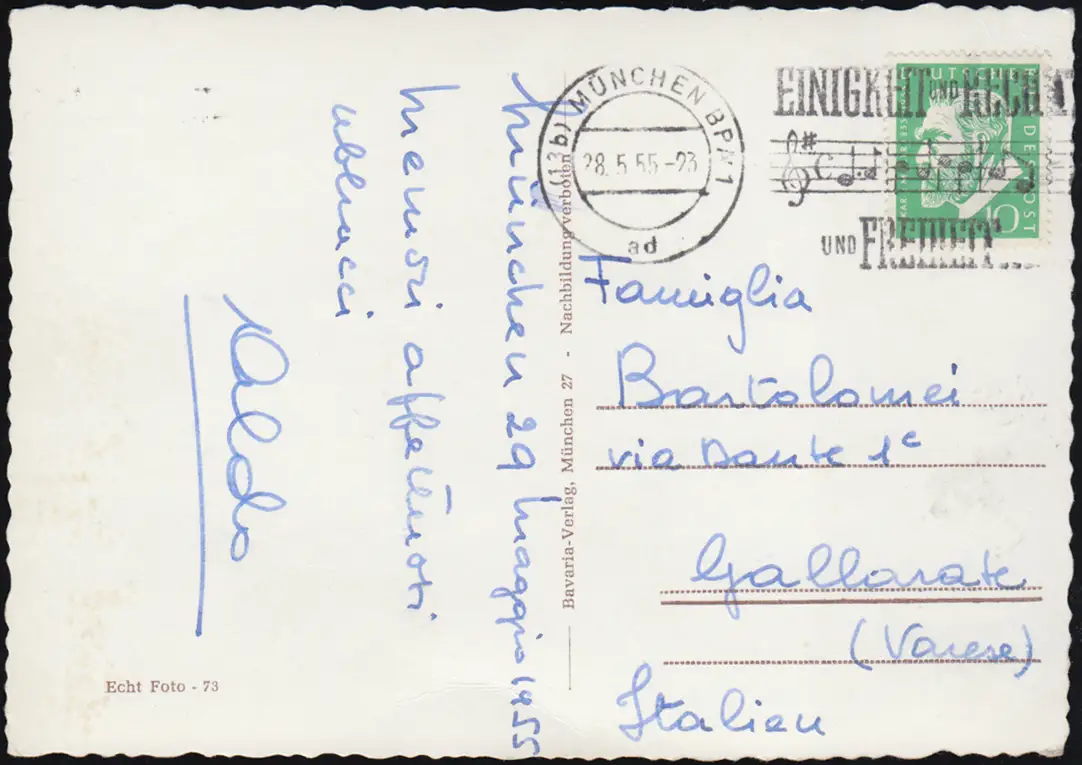 München 29 maggio 1955
memori affettuosi
abbracci
Aldo
Echt Foto - 73
Bavaria-Verlag, München 27 - Nachbildung verboten
(13b) MÜNCHEN BPA 1
28.5.55-23
ad
EINIGKEIT UND RECHT
UND FREIHEIT...
10
Famiglia
Bartolomei
via Dante 1c
Gallarate
(Varese)
Italien